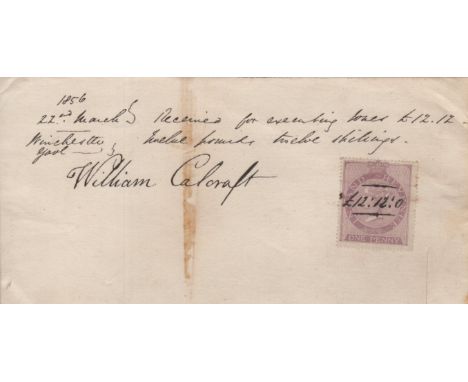 1856
22nd March Received for executing Jones £.12.12-
Winchester Twelve pounds twelve shillings.
gaol
William Calcraft
£12:12:0
ONE PENNY